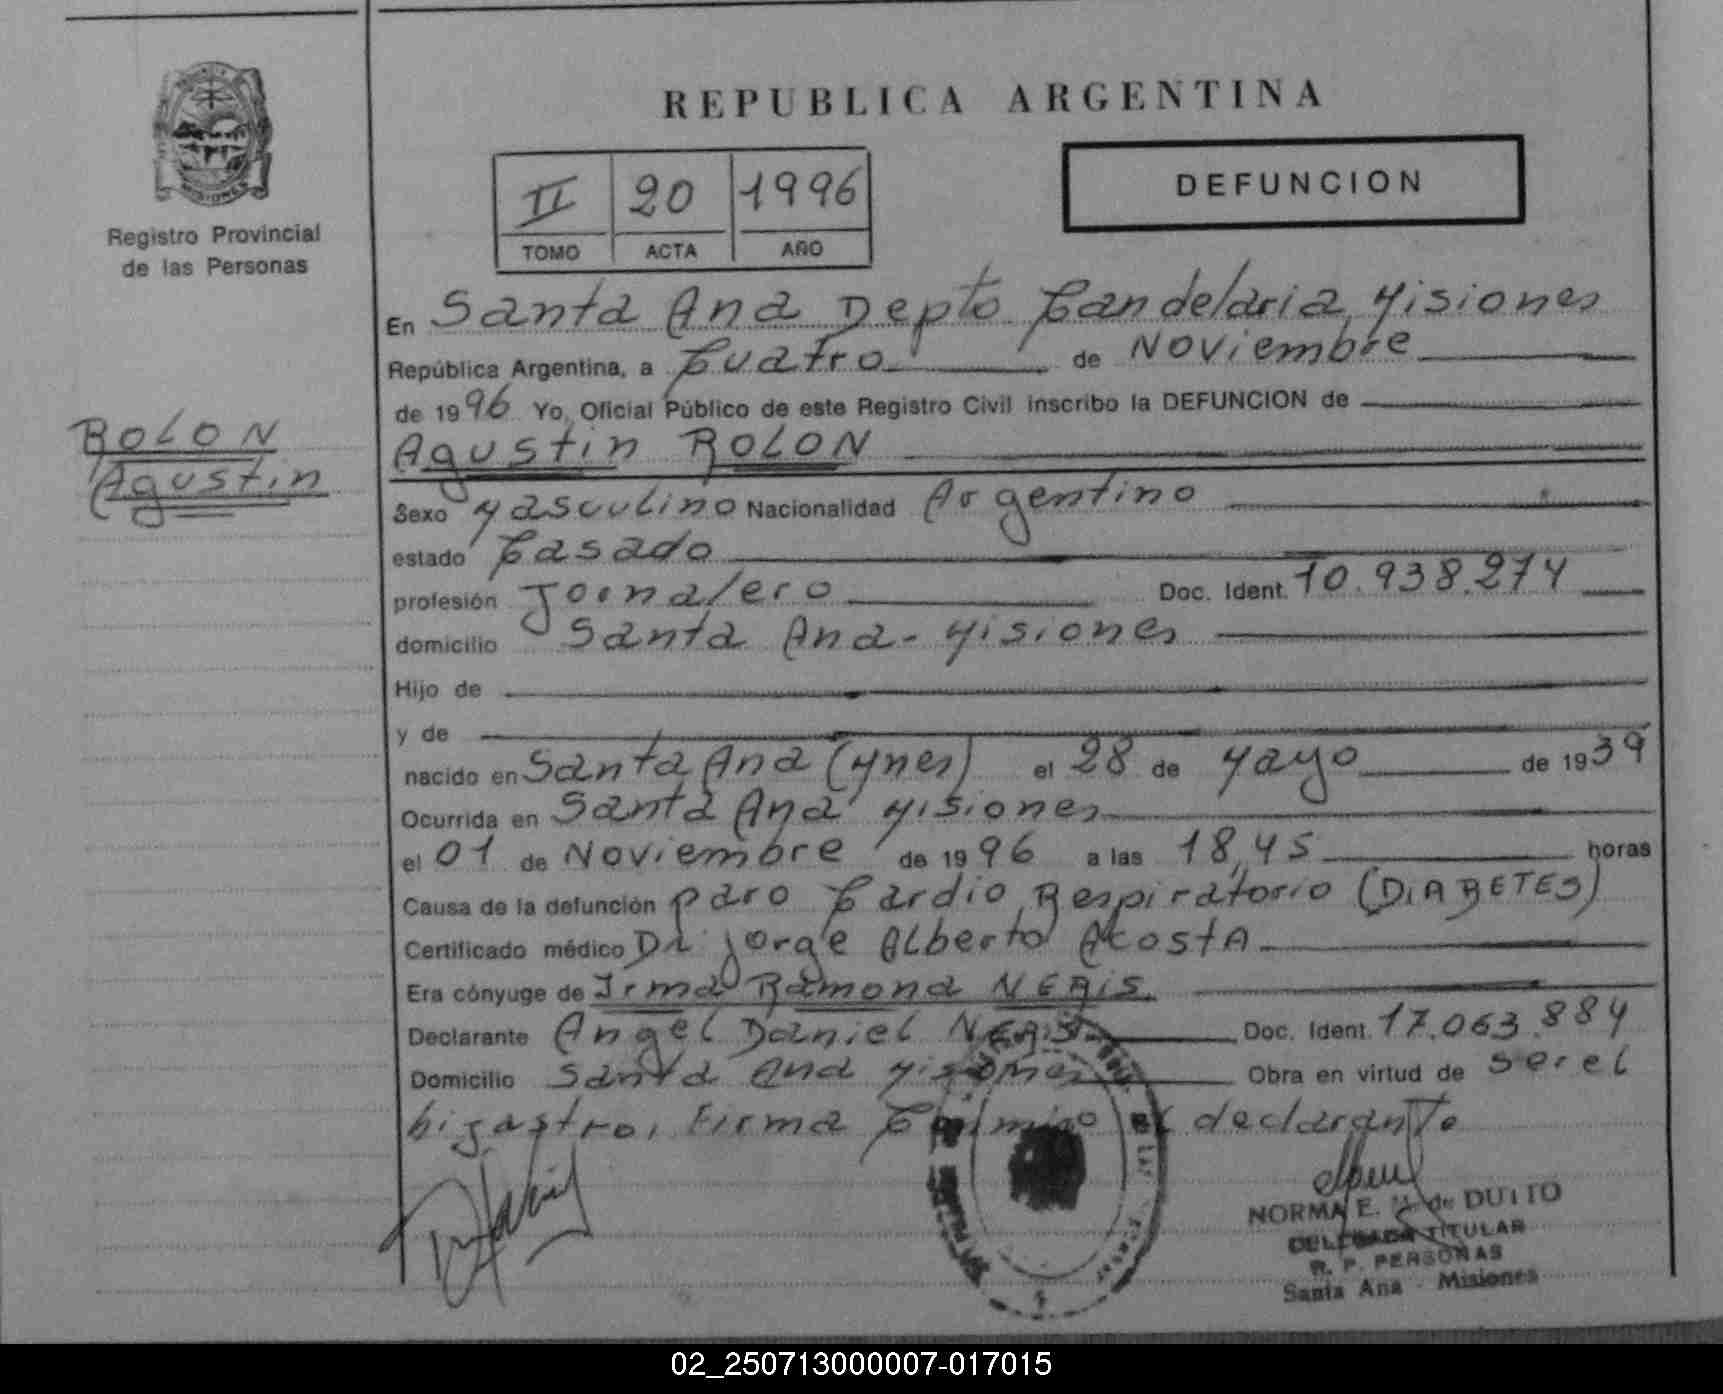 REPUBLICA ARGENTINA
II 20 1996
TOMO ACTA AÑO
DEFUNCION
Registro Provincial
de las Personas
MISIONES
ROLON
Agustin
En Santa Ana Depto Candelaria, Misiones
República Argentina, a Cuatro de Noviembre
de 1996 Yo, Oficial Público de este Registro Civil inscribo la DEFUNCION de
Agustin ROLON
Sexo Masculino Nacionalidad Argentino
estado Casado
profesión Jornalero Doc. Ident. 10.938.274
domicilio Santa Ana - Misiones
Hijo de
y de
nacido en Santa Ana (Mnes) el 28 de Mayo de 1939
Ocurrida en Santa Ana Misiones
el 01 de Noviembre de 1996 a las 18,45 horas
Causa de la defunción paro Cardio Respiratorio (DiABETES)
Certificado médico Dr. Jorge Alberto Acosta
Era cónyuge de Irma Ramona NERIS.
Declarante Angel Daniel NERIS Doc. Ident. 17.063.884
Domicilio Santa Ana Misiones Obra en virtud de ser el
hijastro, Firma Conmigo el declarante
NORMA E. M. de DUTTO
DELEGADA TITULAR
R. P. PERSONAS
Santa Ana - Misiones
02_250713000007-017015